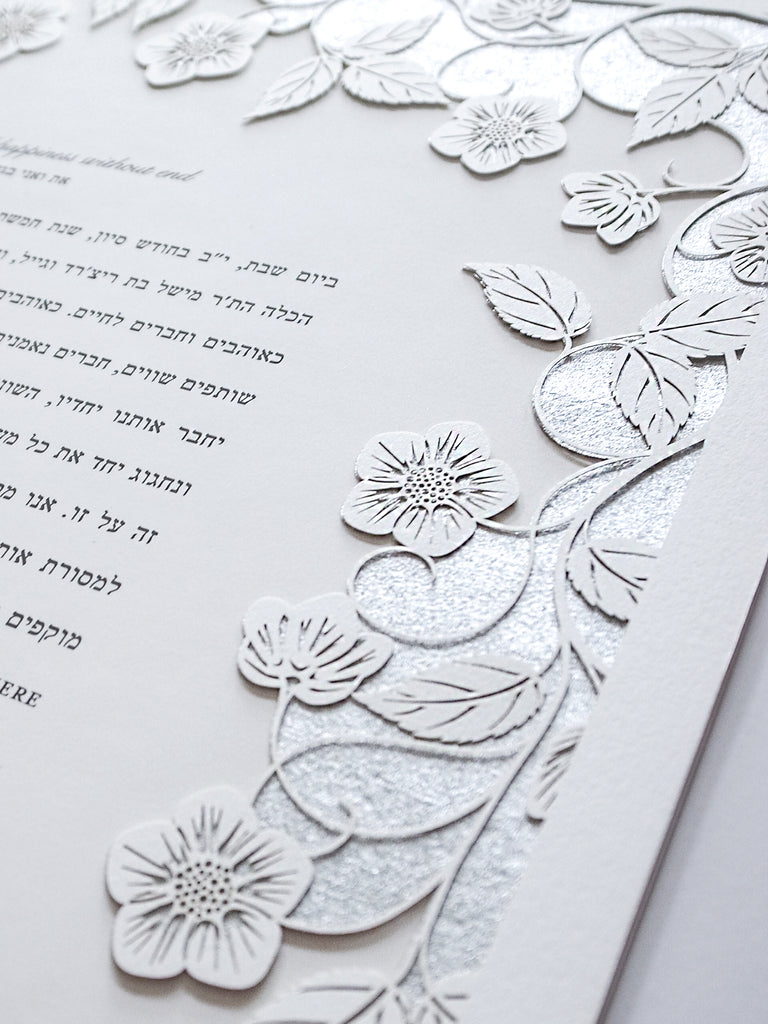 happiness without end
את ואני
ביום שבת, י״ב בחודש סיון, שנת חמשת
הכלה התיר מישל בת ריצ׳רד וגייל,
כאוהבים וחברים לחיים. כאוהבים
שותפים שווים, חברים נאמנים
יחבר אותנו יחדיו,
ונחגוג יחד את כל
זה על זו. אנו
למסורת
מוקפים